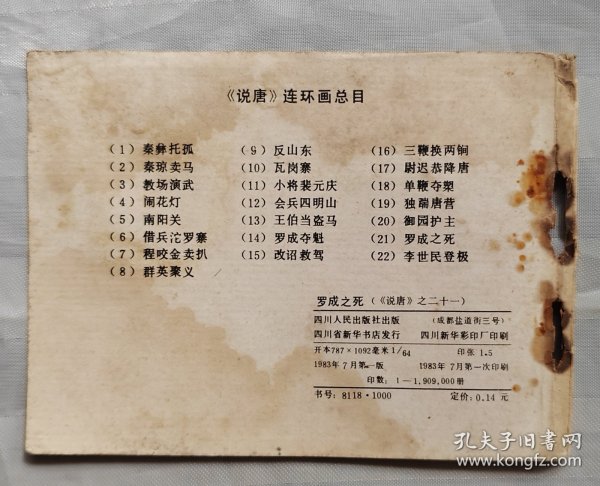 《说唐》连环画总目
(1) 秦彝托孤
(2) 秦琼卖马
(3) 教场演武
(4) 闹花灯
(5) 南阳关
(6) 借兵沱罗寨
(7) 程咬金卖扒
(8) 群英聚义
(9) 反山东
(10) 瓦岗寨
(11) 小将裴元庆
(12) 会兵四明山
(13) 王伯当盗马
(14) 罗成夺魁
(15) 改诏救驾
(16) 三鞭换两锏
(17) 尉迟恭降唐
(18) 单鞭夺塑
(19) 独踹唐营
(20) 御园护主
(21) 罗成之死
(22) 李世民登极
罗成之死 (《说唐》之二十一)
四川人民出版社出版 (成都盐道街三号)
四川省新华书店发行 四川新华彩印厂印刷
开本787×1092毫米1/64 印张 1.5
1983年7月第一版 1983年7月第一次印刷
印数: 1—1,909,000册
书号: 8118·1000 定价: 0.14元
孔夫子旧书网
www.kongfz.com